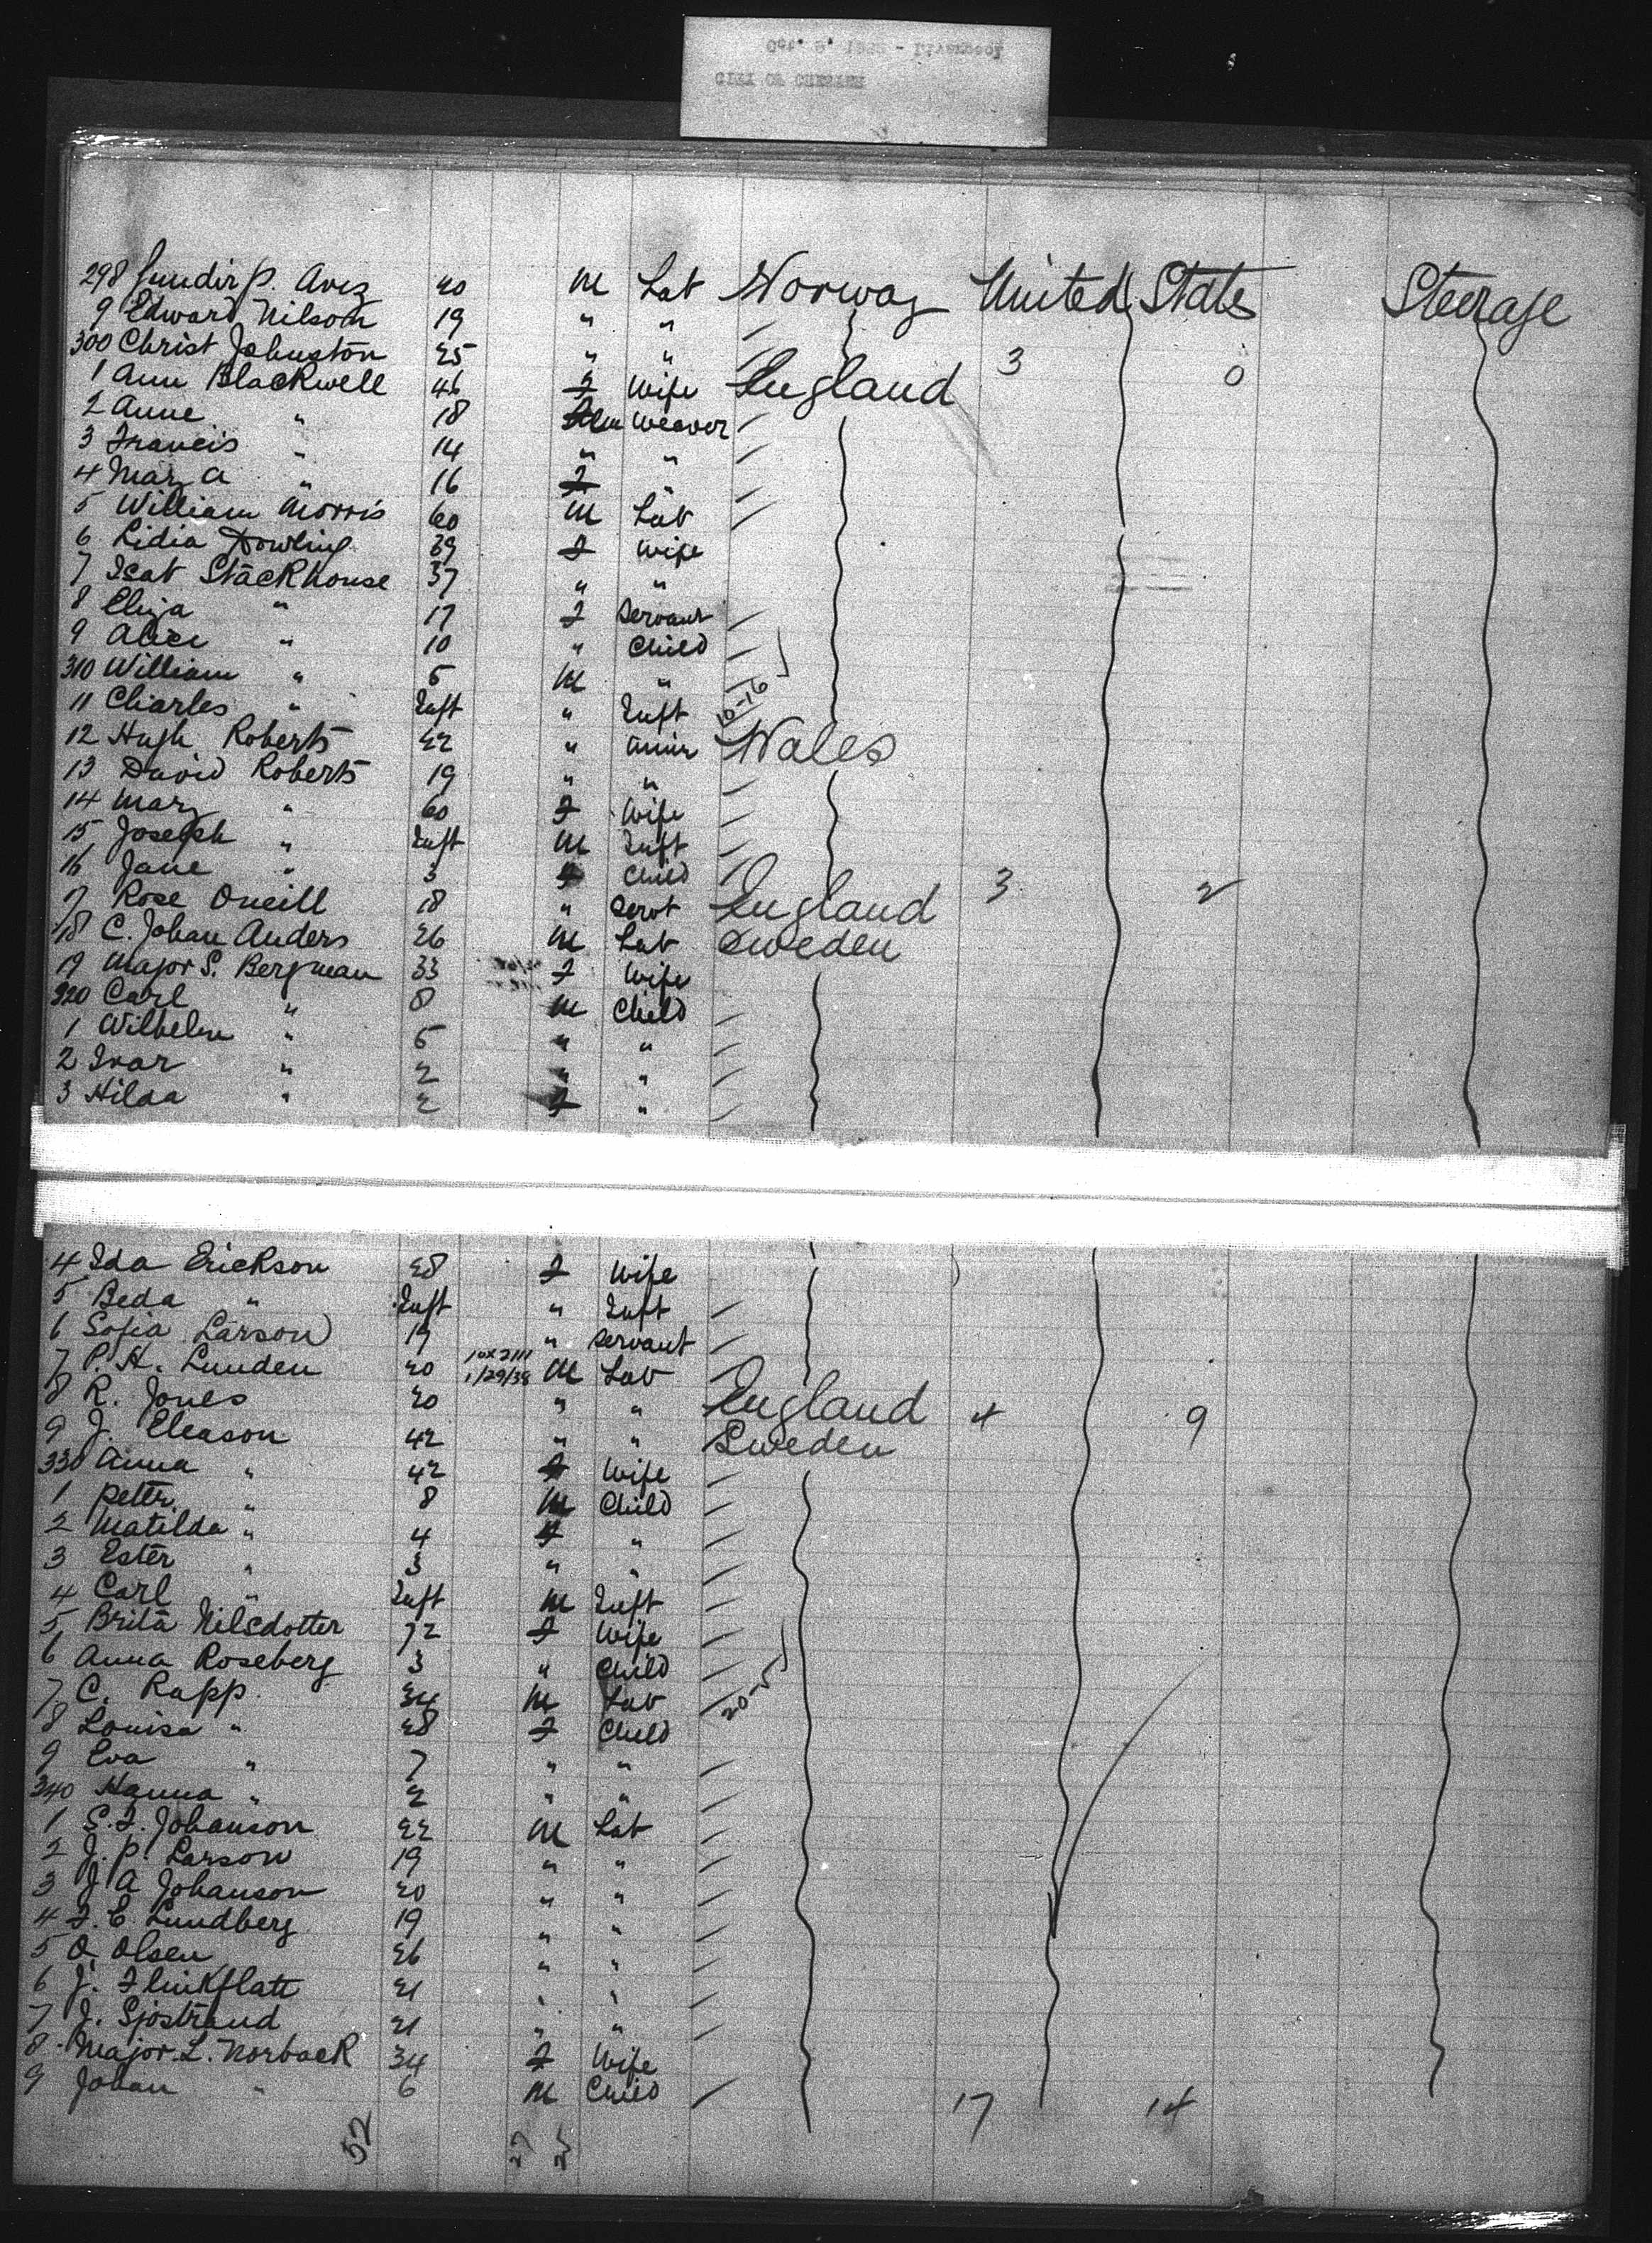 CITY OF CHESTER
298 P. Aviz 20 M Lab Norway United States Steerage
9 Edward Nilson 19 " "
300 Christ Johnston 25 " " 3 0
1 Ann Blackwell 46 F Wife England
2 Anne " 18 Weaver
3 Francis " 14 " "
4 Mary A " 16 F "
5 William Morris 60 M Lab
6 Lidia Dowling 39 F Wife
7 Isab Stackhouse 37 " "
8 Eliza " 17 F Servant
9 Alice " 10 " Child
310 William " 5 M "
11 Charles " Inft " Inft 10-16
12 Hugh Roberts 22 " Miner Wales
13 David Roberts 19 " "
14 Mary " 60 F Wife
15 Joseph " Inft M Inft
16 Jane " 3 F Child
17 Rose Oneill 18 " Servt England 3 2
18 C. Johan Anders 26 M Lab Sweden
19 Major S. Bergman 33 F Wife
320 Carl " 8 M Child
1 Wilhelm " 5 " "
2 Ivar " 2 " "
3 Hilda " 2 F "
4 Ida Erickson 28 F Wife
5 Beda " Inft " Inft
6 Sofia Larson 19 " Servant
7 P. H. Lunden 20 1/29/38 M Lab
8 R. Jones 20 " " England 4 9
9 J. Eleason 42 " " Sweden
330 Anna " 42 F Wife
1 Petter " 8 M Child
2 Matilda " 4 F "
3 Ester " 3 " "
4 Carl " Inft M Inft
5 Brita Nilsdotter 72 F Wife
6 Anna Roseberg 3 " Child
7 C. Rapp 34 M Lab 20-5
8 Louisa " 28 F Child
9 Eva " 7 " "
340 Hanna " 2 " "
1 S. F. Johanson 22 M Lab
2 J. P. Larson 19 " "
3 J A Johanson 20 " "
4 F. E. Lundberg 19 " "
5 O. Olsen 26 " "
6 J. Flinkflatt 21 " "
7 J. Sjostrand 21 " "
8 Major. L. Norback 34 F Wife
9 Johan " 6 M Child 17 14
52 27 25